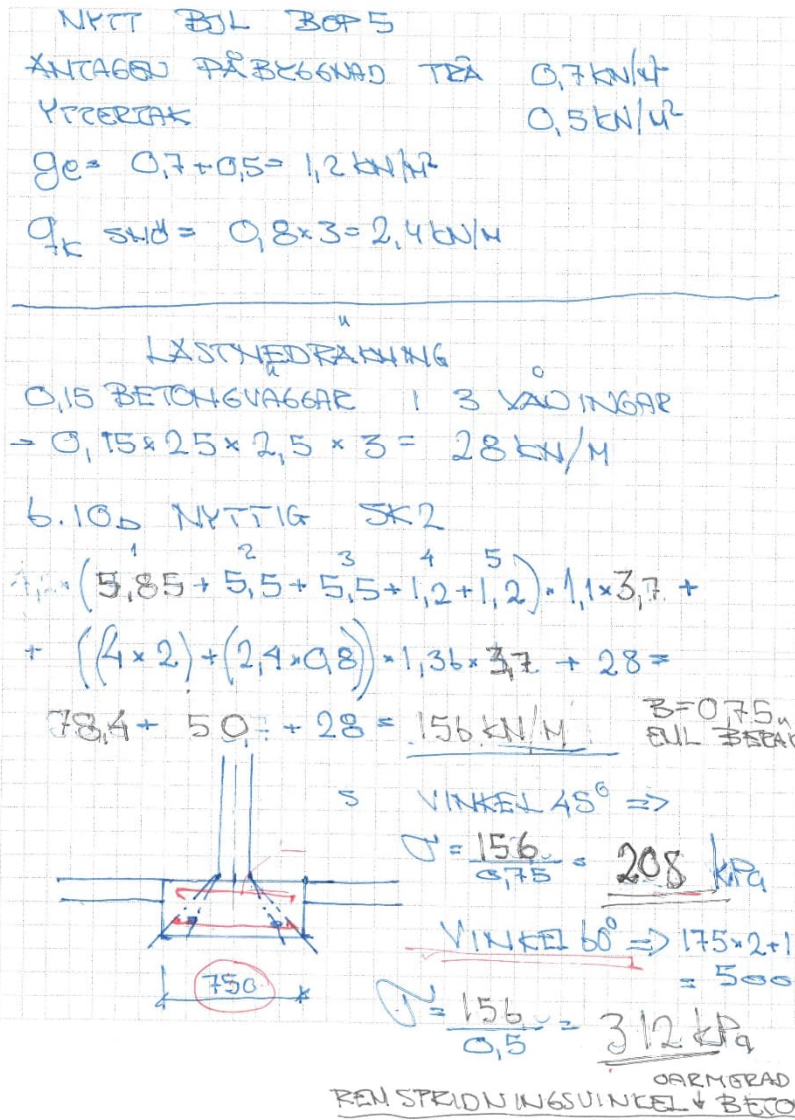 NYTT BJL BOP5
ANTAGEN PÅBYGGNAD TRÄ 0,7 kN/M²
YTTERTAK 0,5 kN/M²
ge= 0,7+0,5= 1,2 kN/M²
qk SNÖ = 0,8×3=2,4 kN/M
LASTNEDRÄKNING
0,15 BETONGVÄGGAR I 3 VÅNINGAR
= 0,15×25×2,5 × 3 = 28 kN/M
6.10b NYTTIG SK2
1 2 3 4 5
(5,85 + 5,5 + 5,5 + 1,2 + 1,2) · 1,1 × 3,7 +
+ ((4 × 2) + (2,4 × 0,8)) · 1,36 × 3,7 + 28 =
78,4 + 50, + 28 = 156 kN/M B=0,75
ENL BERÄK
S VINKEL 45° =>
σ = 156 / 0,75 = 208 kPa
VINKEL 60° => 175×2+1
= 500
750
σ = 156 / 0,5 = 312 kPa
OARMERAD
REN SPRIDNINGSVINKEL ↓ BETO